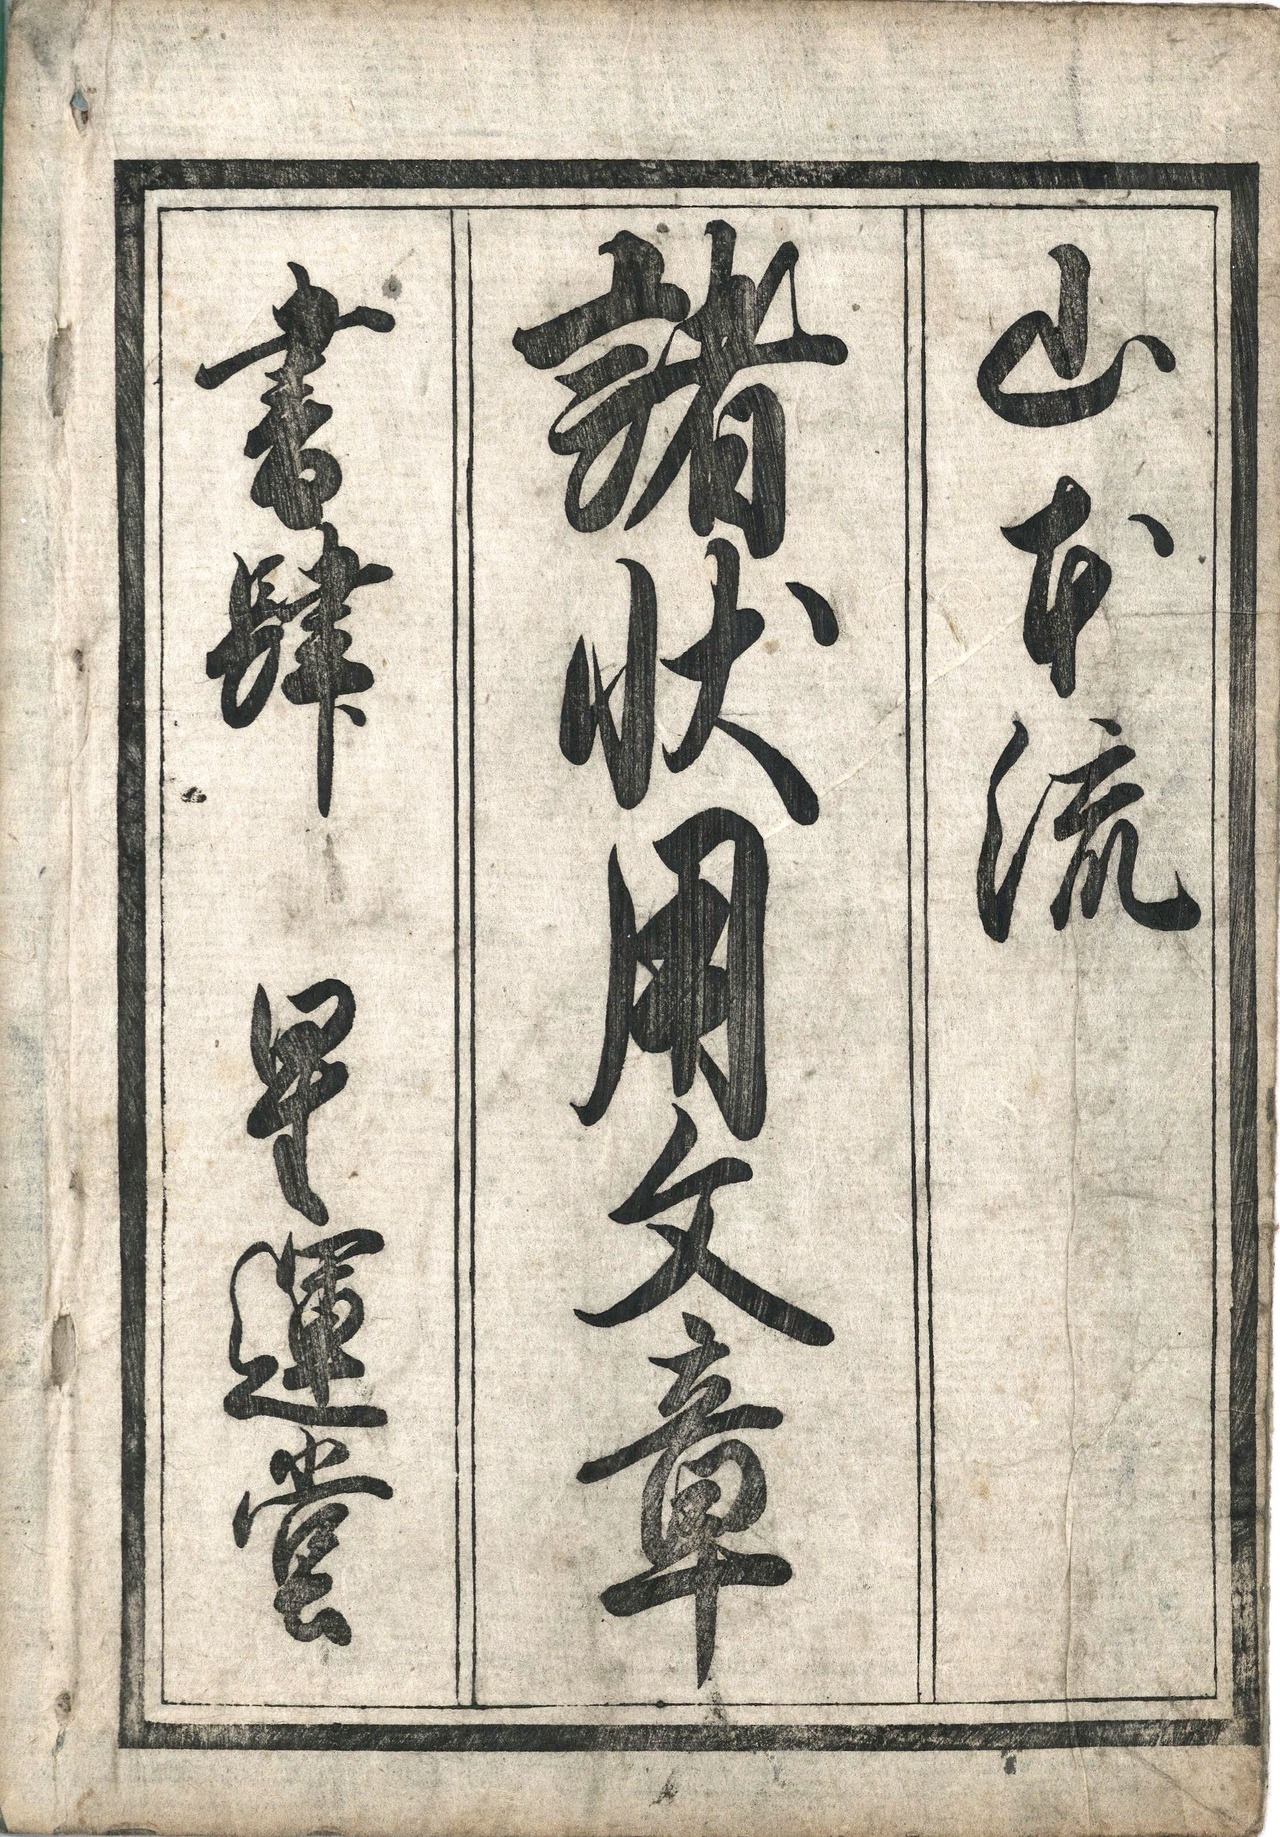 山本流
諸状用文章
書肆 早運堂